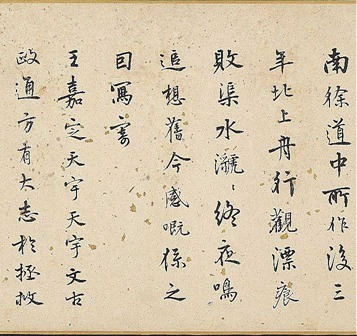 南徐道中所作後三
年北上舟行觀漂痕
敗渠水瀺〻終夜鳴
追想舊今感嘅係之
因寫寄
王嘉定天宇天宇文古
政通方有大志於拯救